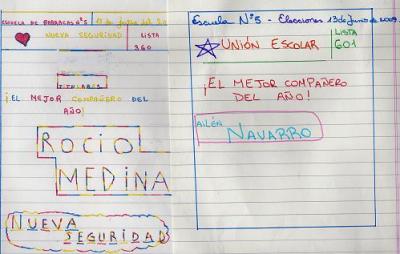 ESCUELA DE BARRACAS Nº5
13 de junio del 20
NUEVA SEGURIDAD
LISTA
360
TITULARES
¡EL MEJOR COMPAÑERO DEL
AÑO!
ROCIO
MEDINA
NUEVA
SEGURIDAD
Escuela Nº5 - Elecciones 13 de junio de 2009
UNIÓN ESCOLAR
LISTA
601
¡EL MEJOR COMPAÑERO
DEL AÑO!
AILÉN
NAVARRO